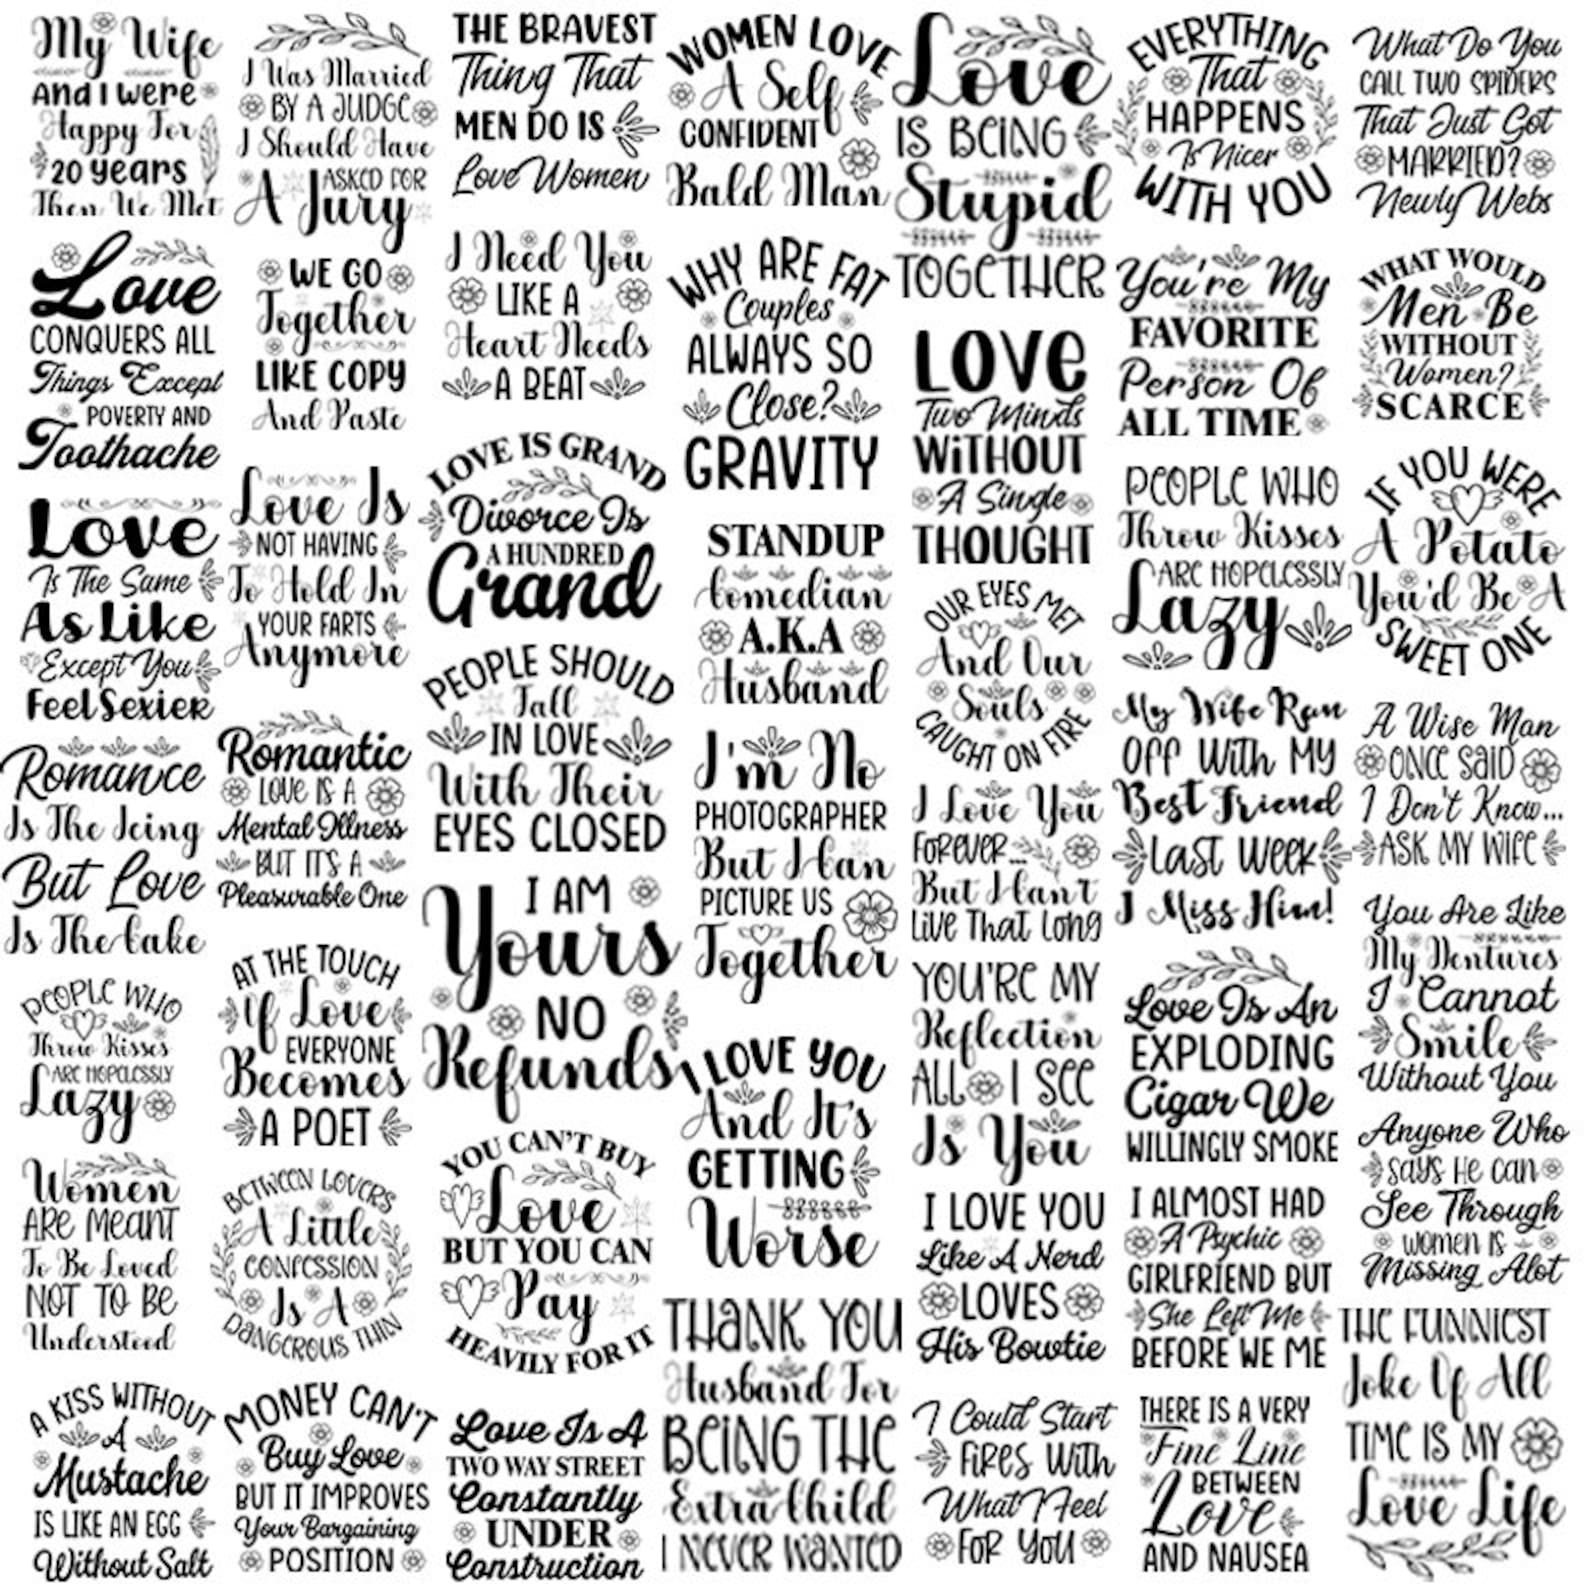 My Wife
And I were
Happy For
20 years
Then We Met
Love
CONQUERS ALL
Things Except
POVERTY AND
Toothache
Love
Is The Same
As Like
Except You
Feel Sexier
Romance
Is The Icing
But Love
Is The Cake
PEOPLE WHO
Throw Kisses
ARE HOPELESSLY
Lazy
Women
ARE MEANT
To Be Loved
NOT TO BE
Understood
A KISS WITHOUT
A
Mustache
IS LIKE AN EGG
Without Salt
I Was Married
BY A JUDGE
I Should Have
ASKED FOR
A Jury
WE GO
Together
LIKE COPY
And Paste
Love Is
NOT HAVING
To Hold In
YOUR FARTS
Anymore
Romantic
LOVE IS A
Mental Illness
BUT IT'S A
Pleasurable One
AT THE TOUCH
If Love
EVERYONE
Becomes
A POET
BETWEEN LOVERS
A Little
CONFESSION
Is A
DANGEROUS THIN
MONEY CAN'T
Buy Love
BUT IT IMPROVES
Your Bargaining
POSITION
THE BRAVEST
Thing That
MEN DO IS
Love Women
I Need You
LIKE A
Heart Needs
A BEAT
LOVE IS GRAND
Divorce Is
A HUNDRED
Grand
PEOPLE SHOULD
Fall
IN LOVE
With Their
EYES CLOSED
I AM
Yours
NO
Refunds
YOU CAN'T BUY
Love
BUT YOU CAN
Pay
HEAVILY FOR IT
Love Is A
TWO WAY STREET
Constantly
UNDER
Construction
WOMEN LOVE
A Self
CONFIDENT
Bald Man
WHY ARE FAT
Couples
ALWAYS SO
Close?
GRAVITY
STANDUP
Comedian
A.K.A
Husband
I'm No
PHOTOGRAPHER
But I Can
PICTURE US
Together
I LOVE YOU
And It's
GETTING
Worse
THANK YOU
Husband For
BEING THE
Extra Child
I NEVER WANTED
Love
IS BEING
Stupid
TOGETHER
LOVE
Two Minds
WITHOUT
A Single
THOUGHT
OUR EYES MET
And Our
Souls
CAUGHT ON FIRE
I Love You
FOREVER...
But I Can't
Live That Long
YOU'RE MY
Reflection
ALL I SEE
Is You
I LOVE YOU
Like A Nerd
LOVES
His Bowtie
I Could Start
FIRES With
What I Feel
FOR YOU
EVERYTHING
That
HAPPENS
Is Nicer
WITH YOU
You're My
FAVORITE
Person Of
ALL TIME
PEOPLE WHO
Throw Kisses
ARE HOPELESSLY
Lazy
My Wife Run
OFF With MY
Best Friend
Last Week
I Miss Him!
Love Is An
EXPLODING
Cigar We
WILLINGLY SMOKE
I ALMOST HAD
A Psychic
GIRLFRIEND BUT
She Left Me
BEFORE WE ME
THERE IS A VERY
Fine Line
BETWEEN
Love
AND NAUSEA
What Do You
CALL TWO SPIDERS
That Just Got
MARRIED?
Newly Webs
WHAT WOULD
Men Be
WITHOUT
Women?
SCARCE
IF YOU WERE
A Potato
You'd Be A
SWEET ONE
A Wise Man
ONCE SAID
I Don't Know...
ASK MY WIFE
You Are Like
My Dentures
I Cannot
Smile
Without You
Anyone Who
says He can
See Through
women is
Missing Alot
THE FUNNIEST
Joke Of All
TIME IS MY
Love Life